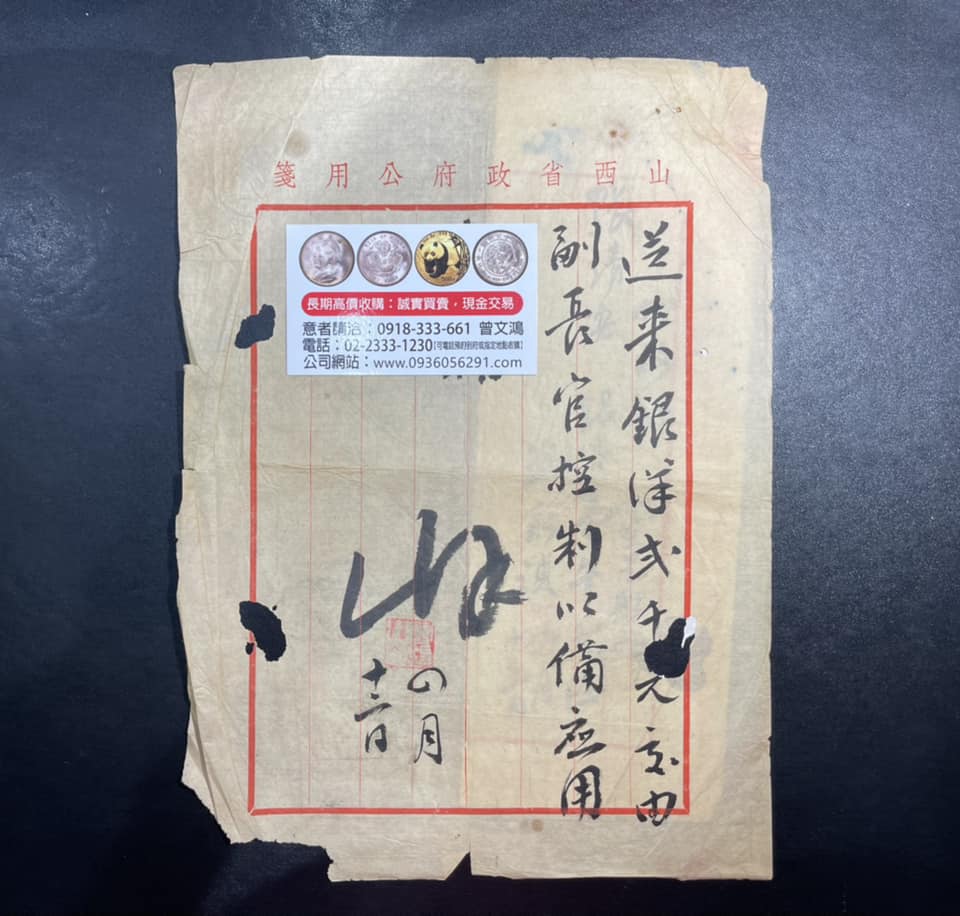 山西省政府公用箋
送来銀洋弍千元交由
副長官控制以備應用
四月
十二日
長期高價收購：誠實買賣，現金交易
意者請洽：0918-333-661 曾文鴻
電話：02-2333-1230 [可電話預約到府或指定地點收購]
公司網站：www.0936056291.com